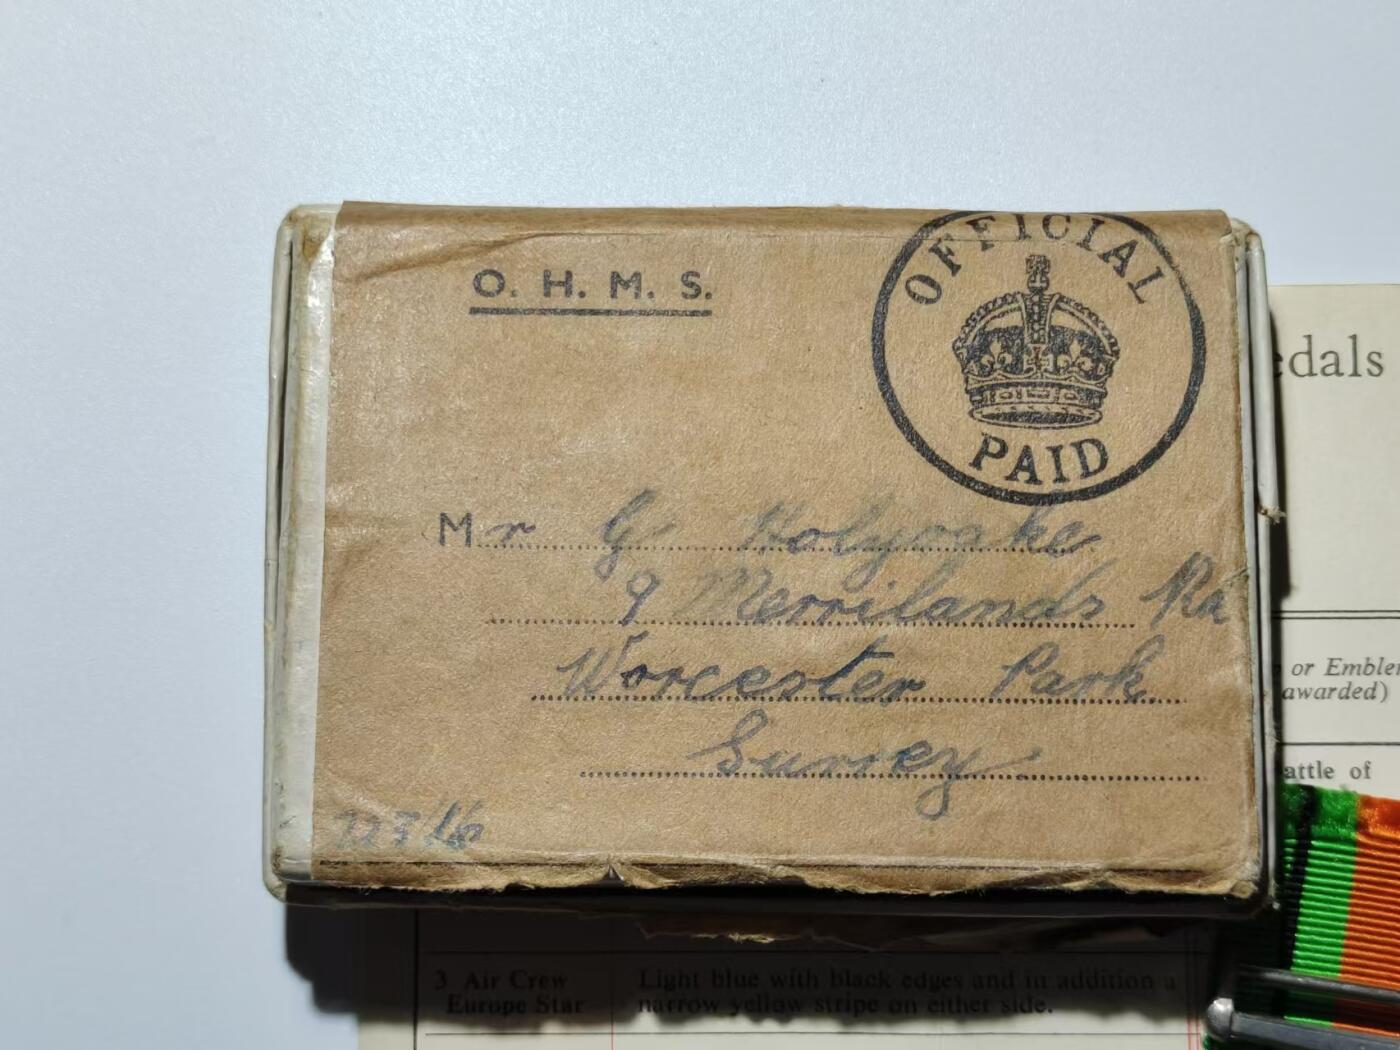 O. H. M. S.
OFFICIAL
PAID
Mr G Holyoake
9 Merrilands Rd
Worcester Park
Surrey
edals
or Emblem
awarded)
attle of
3 Air Crew
Europe Star
Light blue with black edges and in addition a
narrow yellow stripe on either side.